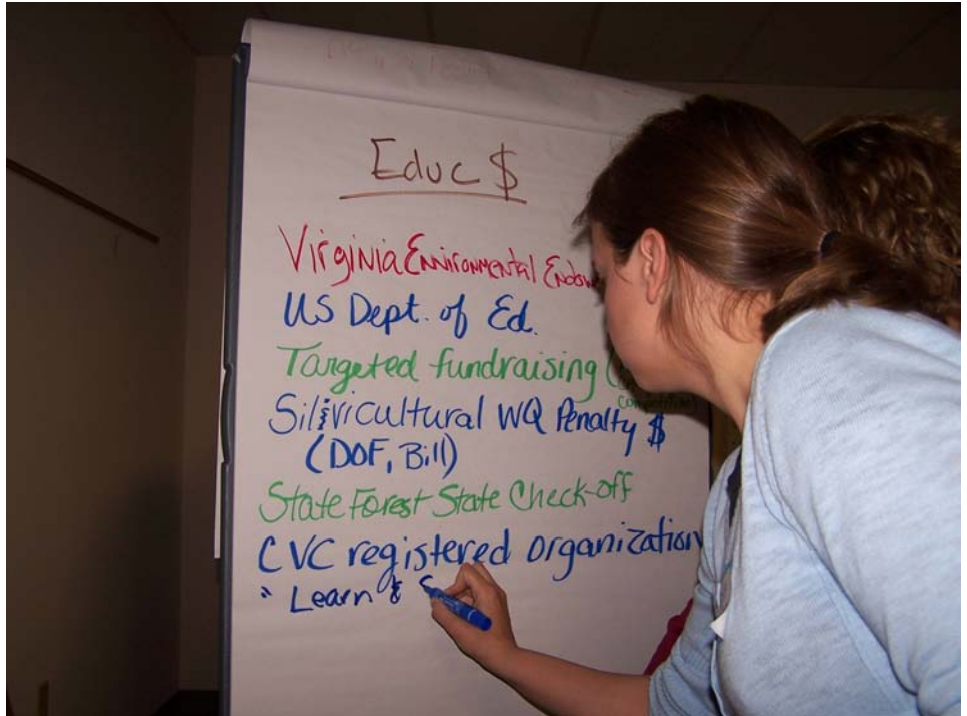 Educ $
Virginia Environmental
US Dept. of Ed.
Targeted fundraising
Silvicultural WQ Penalty $
(DOF, Bill)
State Forest State Check-off
CVC registered organization
" Learn &